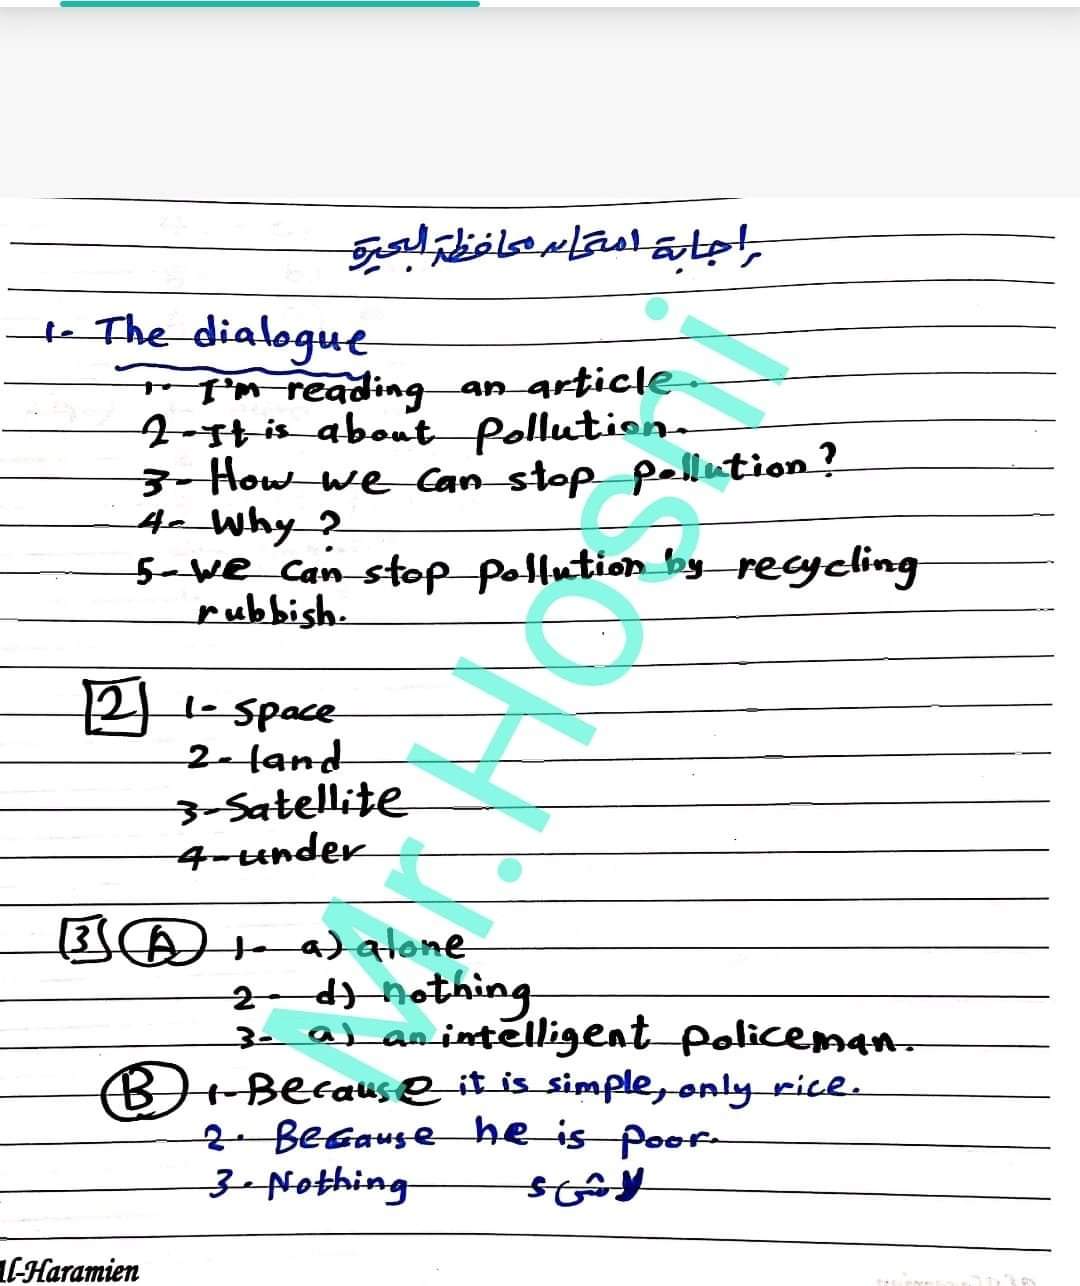 إجابة امتحان محافظة البحيرة
1- The dialogue
1- I'm reading an article.
2- It is about pollution.
3- How we can stop pollution?
4- Why?
5- we can stop pollution by recycling
rubbish.
2 1- space
2- land
3- Satellite
4- under
3 A 1- a) alone
2- d) nothing
3- a) an intelligent policeman.
B 1- Because it is simple, only rice.
2. Because he is poor.
3. Nothing لا شىء
Al-Haramien
Mr.Hosni